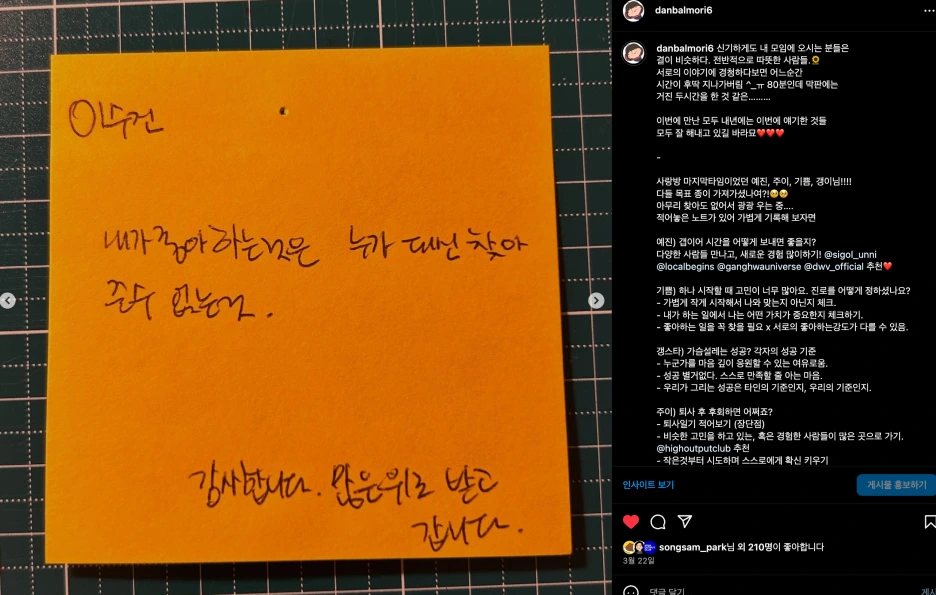 이수건
내가 좋아하는것은 누가 대신 찾아
줄수 없는것.
감사합니다. 많은위로 받고
갑니다.
danbalmori6
danbalmori6 신기하게도 내 모임에 오시는 분들은
결이 비슷하다. 전반적으로 따뜻한 사람들.🌻
서로의 이야기에 경청하다보면 어느순간
시간이 후딱 지나가버림 ^_ㅠ 80분인데 막판에는
거진 두시간을 한 것 같은.........
이번에 만난 모두 내년에는 이번에 얘기한 것들
모두 잘 해내고 있길 바라묘❤️❤️❤️
-
사랑방 마지막타임이었던 예진, 주이, 기쁨, 갱이님!!!!
다들 목표 종이 가져가셨나여?!🥺🥺
아무리 찾아도 없어서 광광 우는 중....
적어놓은 노트가 있어 가볍게 기록해 보자면
예진) 갭이어 시간을 어떻게 보내면 좋을지?
다양한 사람들 만나고, 새로운 경험 많이하기! @sigol_unni
@localbegins @ganghwauniverse @dwv_official 추천❤️
기쁨) 하나 시작할 때 고민이 너무 많아요. 진로를 어떻게 정하셨나요?
- 가볍게 작게 시작해서 나와 맞는지 아닌지 체크.
- 내가 하는 일에서 나는 어떤 가치가 중요한지 체크하기.
- 좋아하는 일을 꼭 찾을 필요 x 서로의 좋아하는강도가 다를 수 있음.
갱스타) 가슴설레는 성공? 각자의 성공 기준
- 누군가를 마음 깊이 응원할 수 있는 여유로움.
- 성공 별거없다. 스스로 만족할 줄 아는 마음.
- 우리가 그리는 성공은 타인의 기준인지, 우리의 기준인지.
주이) 퇴사 후 후회하면 어쩌죠?
- 퇴사일기 적어보기 (장단점)
- 비슷한 고민을 하고 있는, 혹은 경험한 사람들이 많은 곳으로 가기.
@highoutputclub 추천
- 작은것부터 시도하며 스스로에게 확신 키우기
인사이트 보기
게시물 홍보하기
songsam_park님 외 210명이 좋아합니다
3월 22일
댓글 달기
게시